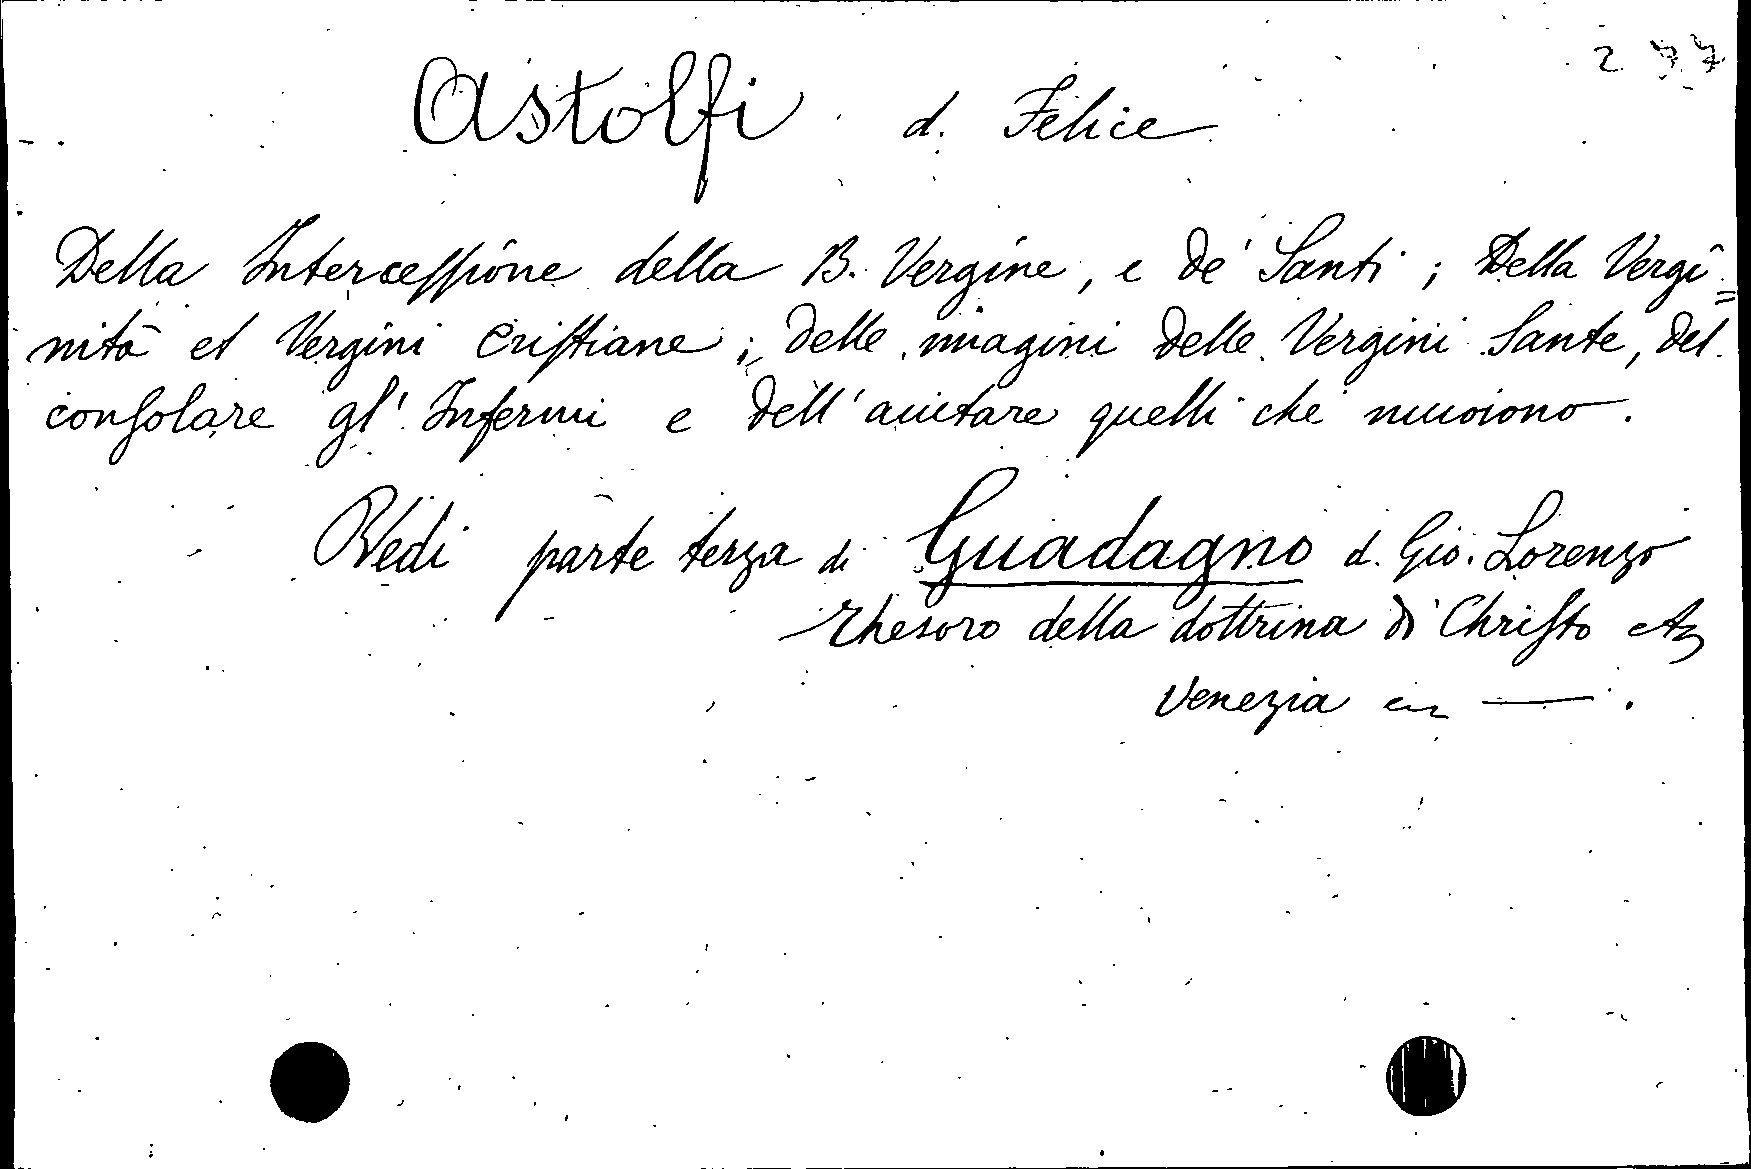 277
Astolfi d. Felice
Della Intercessione della B. Vergine, e de' Santi; Della Vergi=
nità et Vergini Cristiane; delle imagini delle Vergini Sante, del
consolare gl' Infermi e dell' aiutare quelli che muoiono.
Vedi parte terza di Guadagno d. Gio. Lorenzo
Thesoro della dottrina di Christo etc
Venezia in —.